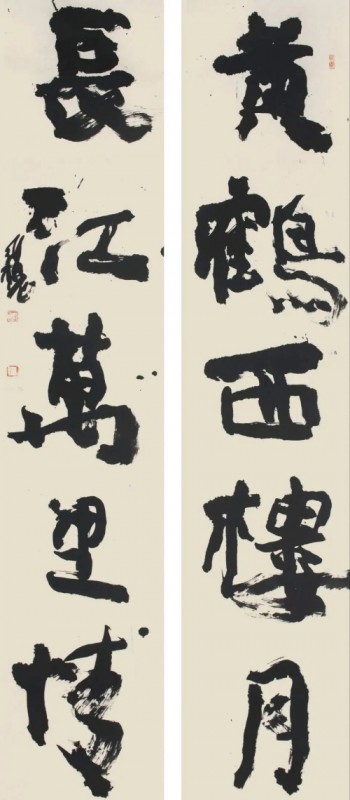 黄鶴西樓月
長江萬里情